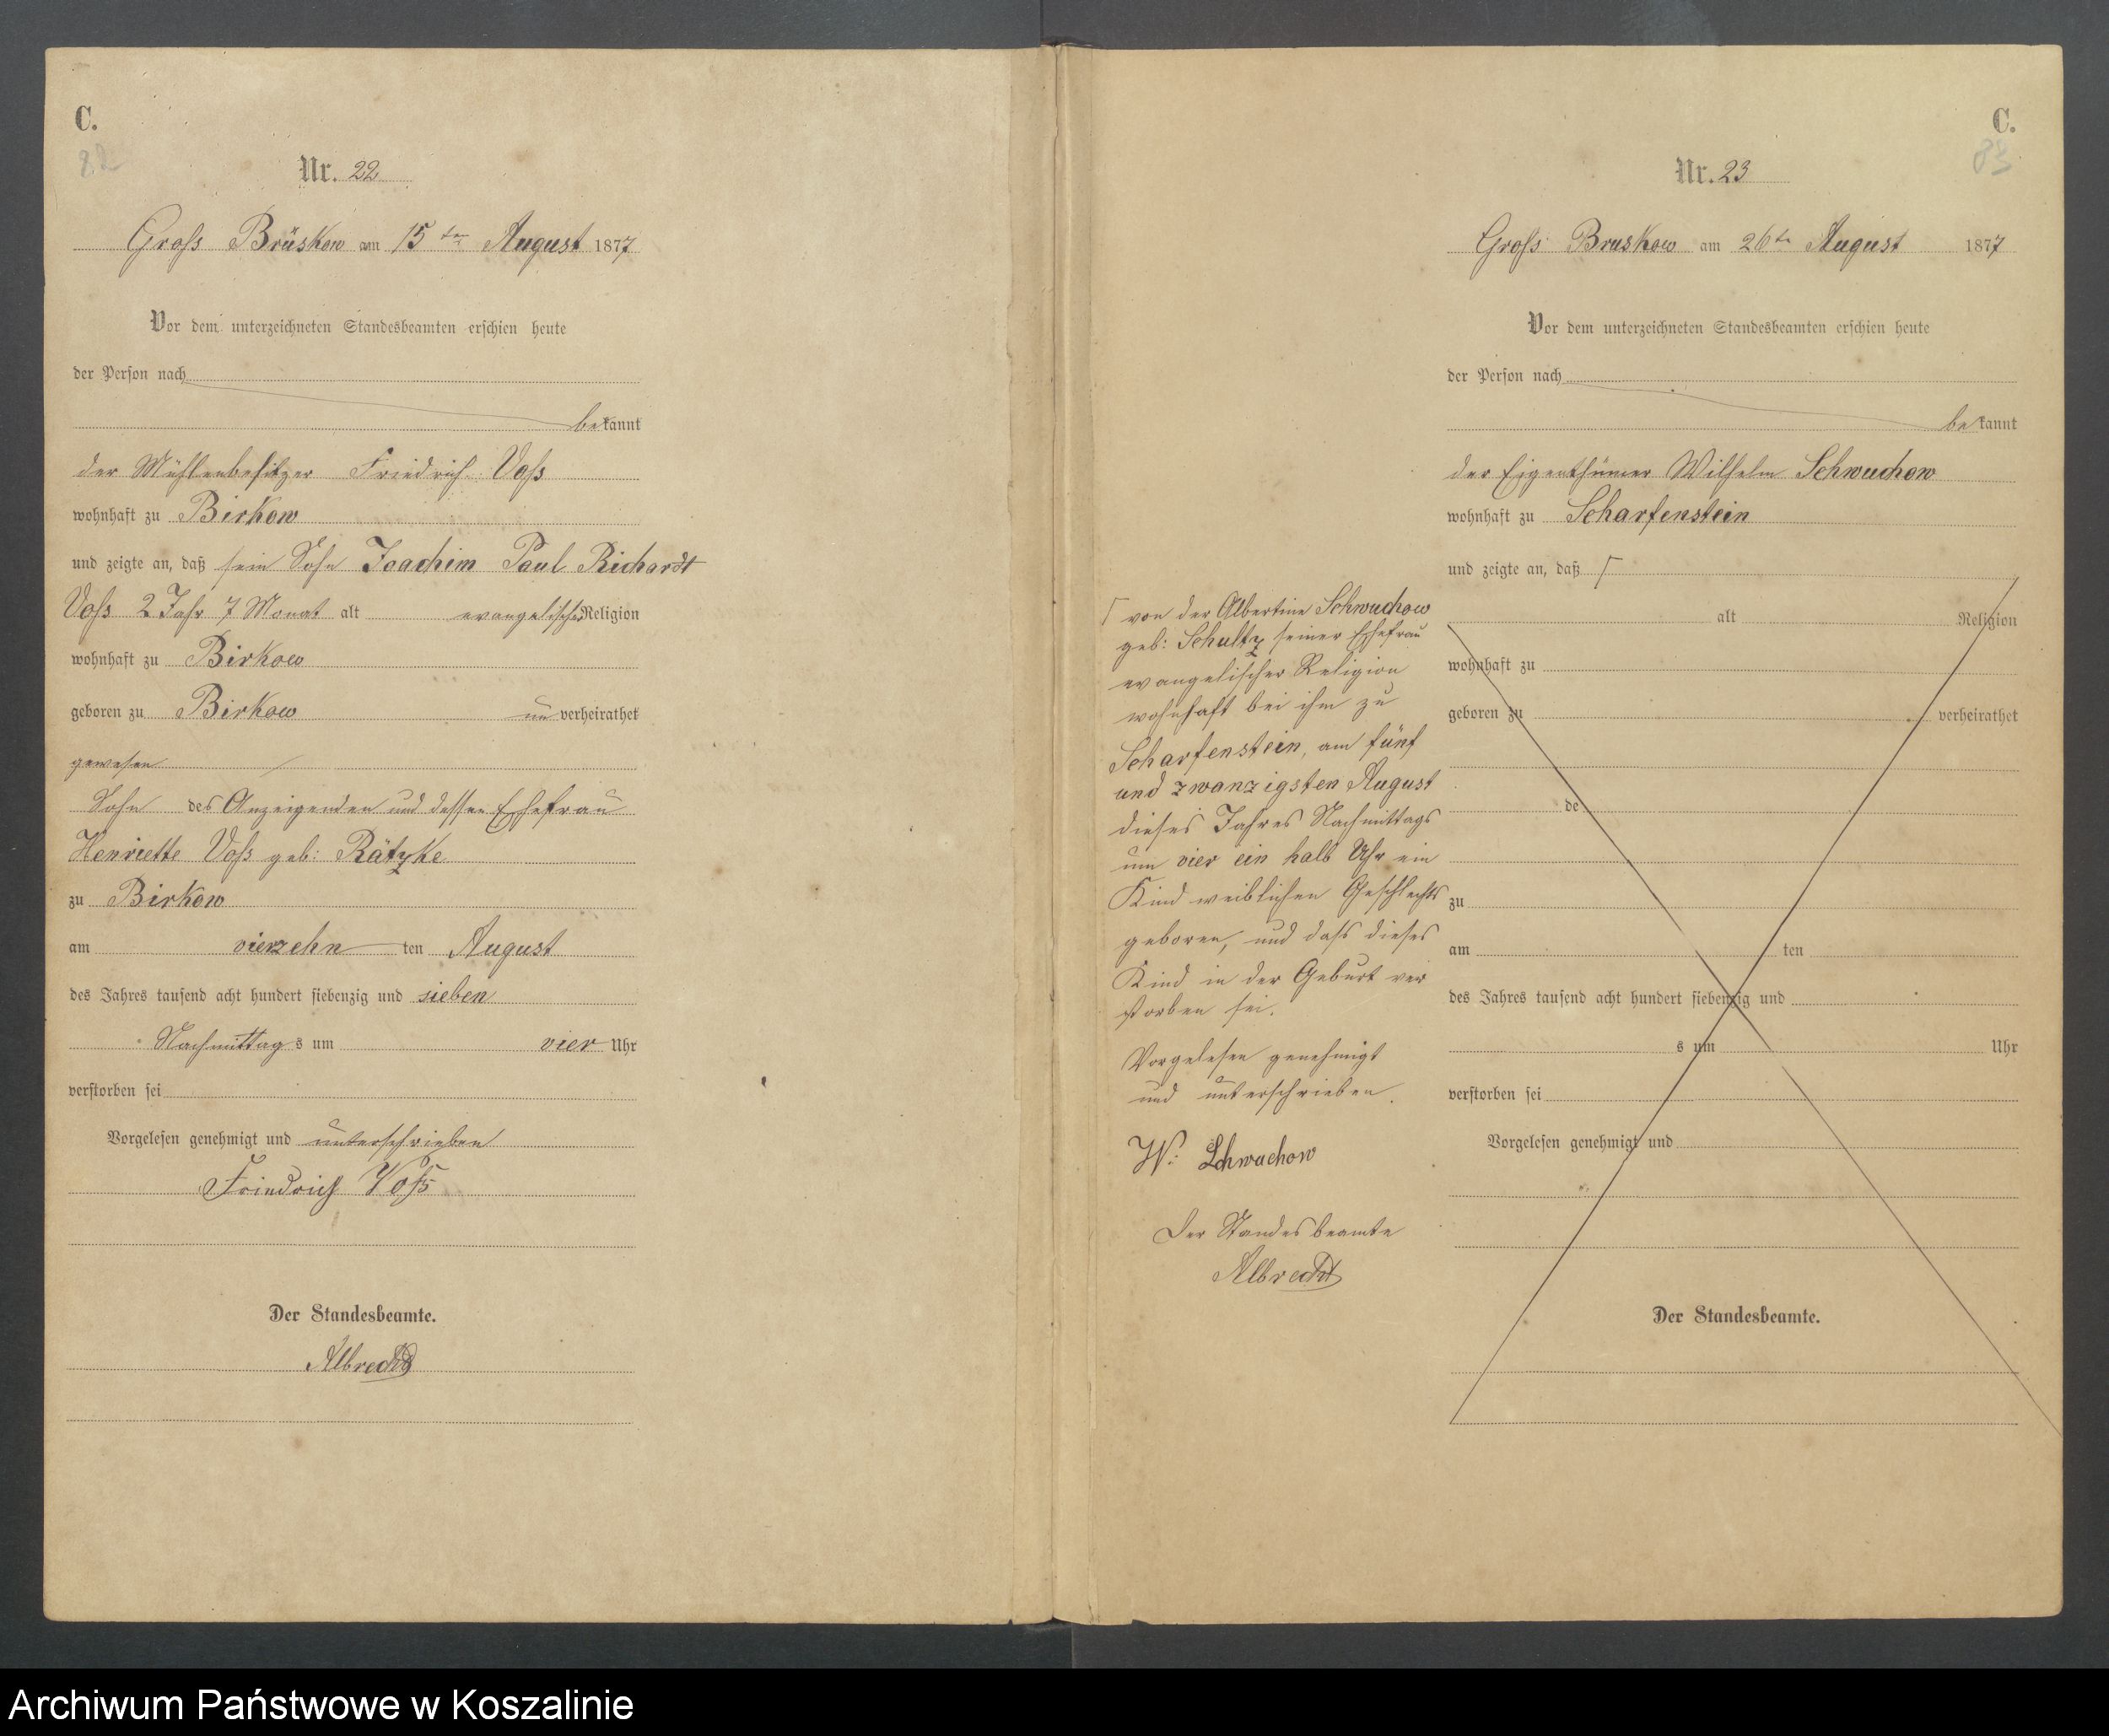 C.
82
Nr. 22
Groß Brüskow am 15ten August 1877
Vor dem unterzeichneten Standesbeamten erschien heute
der Person nach
bekannt
der Mühlenbesitzer Friedrich Voß
wohnhaft zu Birkow
und zeigte an, daß sein Sohn Joachim Paul Richardt
Voß 2 Jahr 7 Monat alt evangelischer Religion
wohnhaft zu Birkow
geboren zu Birkow unverheirathet
gewesen
Sohn des Anzeigenden und dessen Ehefrau
Henriette Voß geb: Rätzke
zu Birkow
am vierzehnten August
des Jahres tausend acht hundert siebenzig und sieben
Nachmittags um vier Uhr
verstorben sei
Vorgelesen genehmigt und unterschrieben
Friedrich Voß
Der Standesbeamte.
Albrecht
C.
83
Nr. 23
Groß Bruskow am 26te August 1877
Vor dem unterzeichneten Standesbeamten erschien heute
der Person nach
bekannt
der Eigenthümer Wilhelm Schwuchow
wohnhaft zu Scharfenstein
und zeigte an, daß ⌈
⌈ von der Albertine Schwuchow
geb: Schultz seiner Ehefrau
evangelischer Religion
wohnhaft bei ihm zu
Scharfenstein, am fünf
und zwanzigsten August
dieses Jahres Nachmittags
um vier ein halb Uhr ein
Kind weiblichen Geschlechts
geboren, und daß dieses
Kind in der Geburt ver
storben sei.
Vorgelesen genehmigt
und unterschrieben.
W: Schwuchow
Der Standesbeamte
Albrecht
alt Religion
wohnhaft zu
geboren zu verheirathet
de
zu
am ten
des Jahres tausend acht hundert siebenzig und
s um Uhr
verstorben sei
Vorgelesen genehmigt und
Der Standesbeamte.
Archiwum Państwowe w Koszalinie